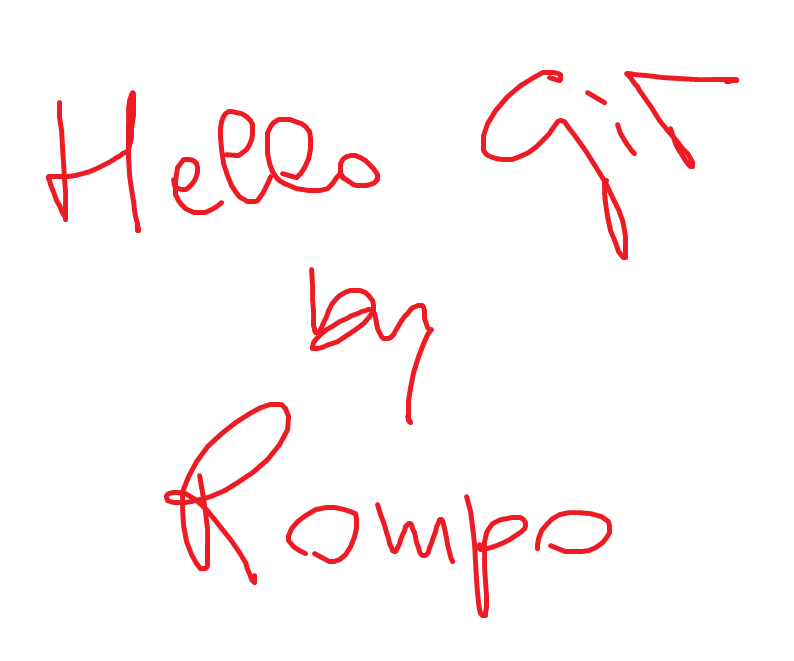 Hello git
by
Rompo